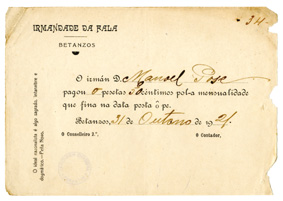 - 34 -
IRMANDADE DA FALA
BETANZOS
O irmán D. Manoel Pose
pagou 0 pesetas 50 céntimos pol-a mensualidade
que fina na data posta ô pe.
Betanzos, 31 de Outono de 192
O Conselleiro 2.º, O Contador,
O ideal nacionalista é algo sagrado, intanxibre e
dogmático.—Fala Nosa.